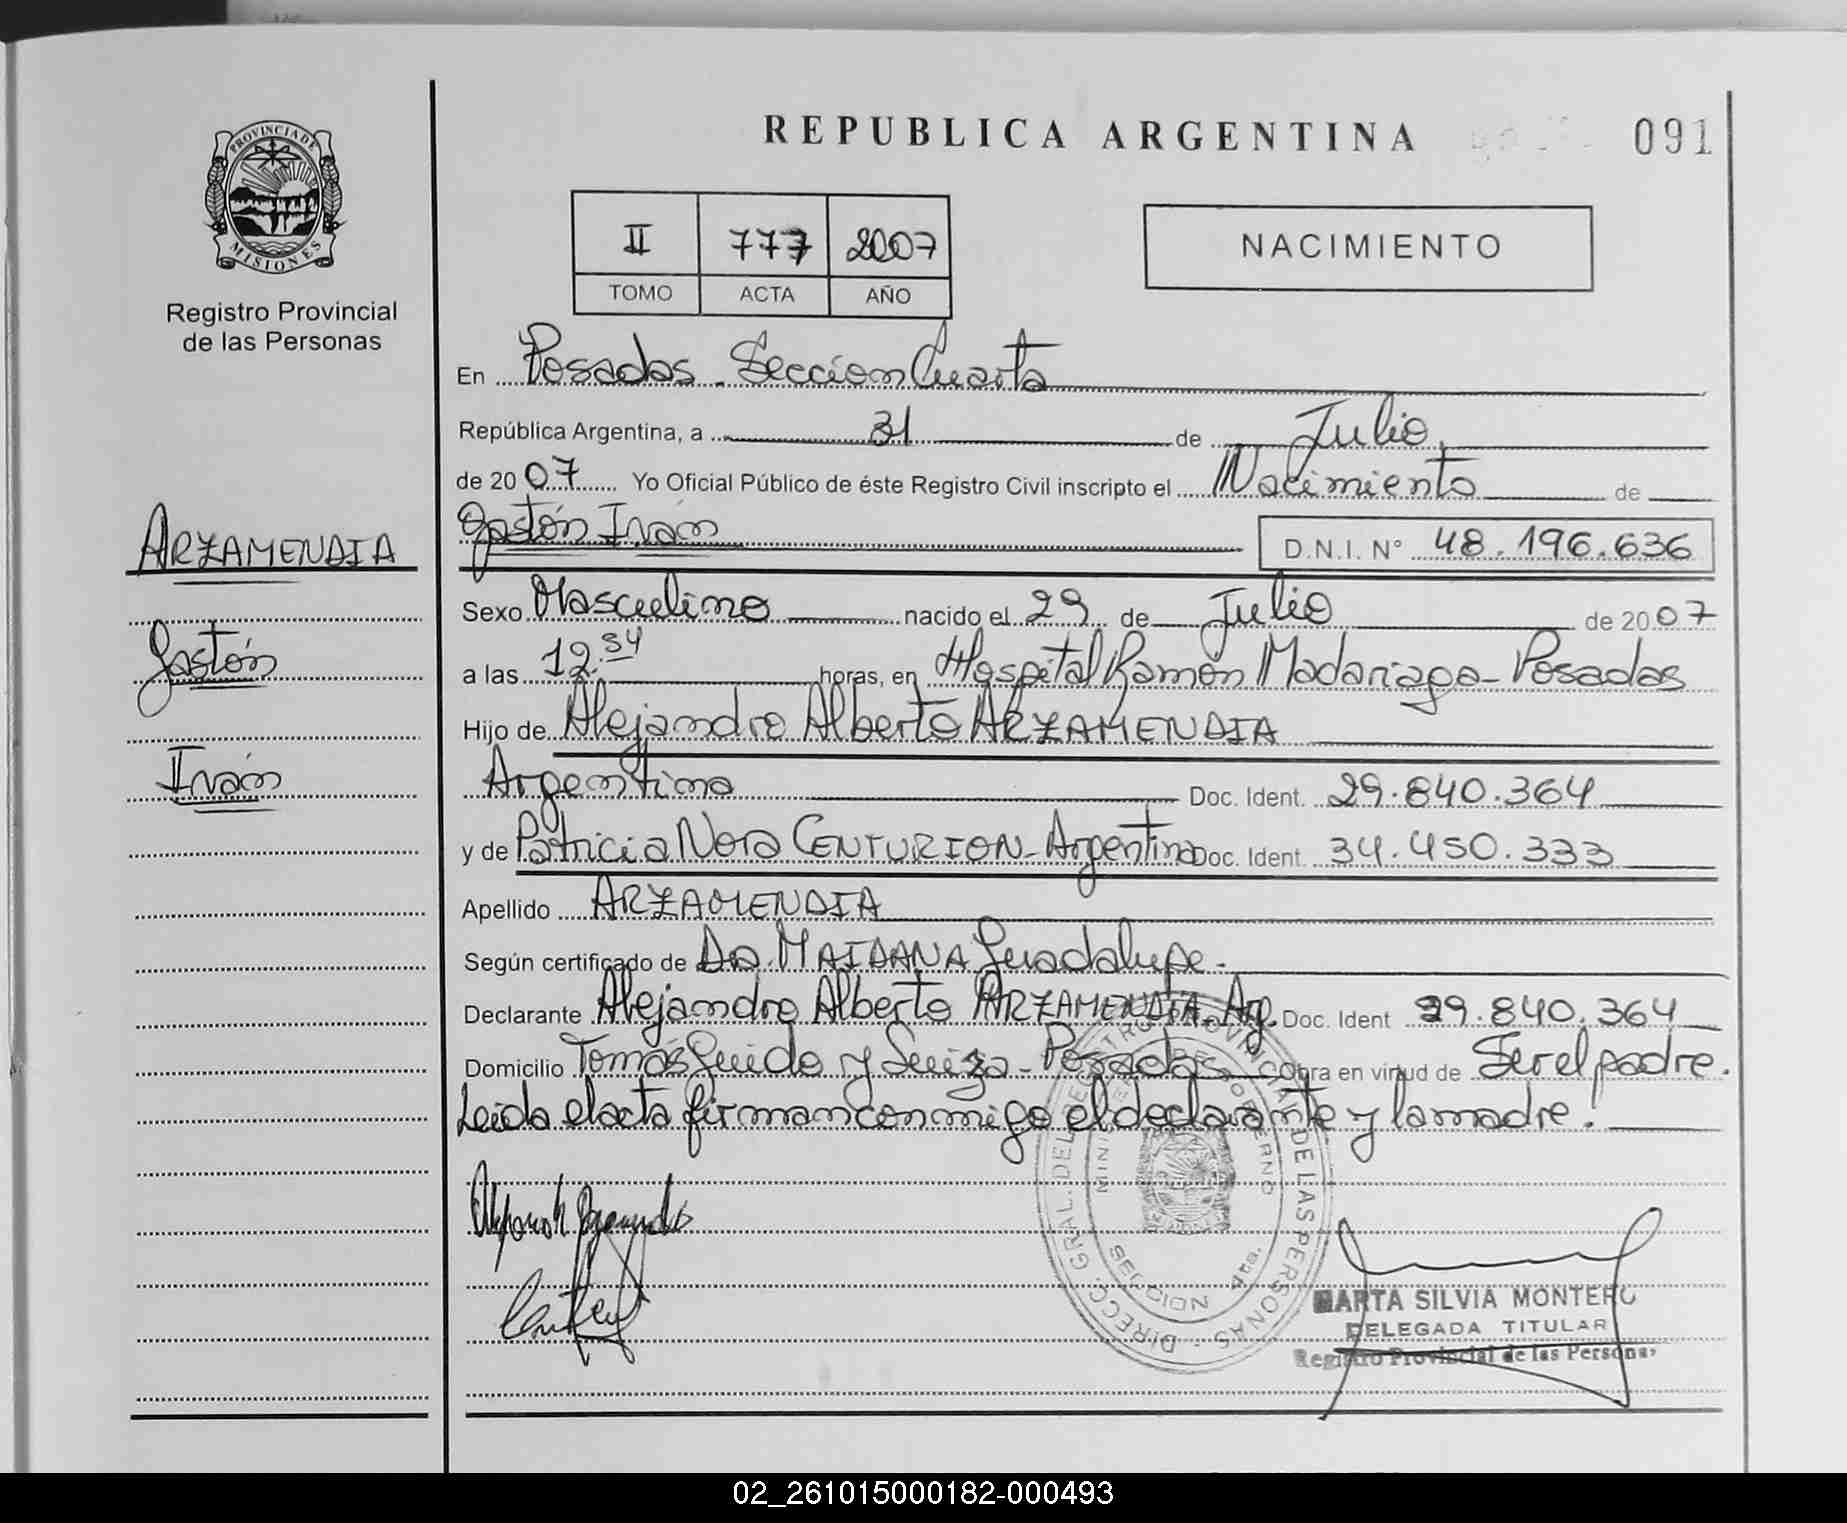 REPUBLICA ARGENTINA 091
PROVINCIA DE MISIONES
Registro Provincial
de las Personas
II 777 2007
TOMO ACTA AÑO
NACIMIENTO
En Posadas - Sección Cuarta
República Argentina, a 31 de Julio,
de 2007 Yo Oficial Público de éste Registro Civil inscripto el Nacimiento de
Gastón Iván D.N.I. N° 48.196.636
ARZAMENDIA
Gastón
Iván
Sexo Masculino nacido el 29 de Julio de 2007
a las 12.54 horas, en Hospital Ramón Madariaga - Posadas
Hijo de Alejandro Alberto ARZAMENDIA
Argentino Doc. Ident. 29.840.364
y de Patricia Nora CENTURION - Argentina Doc. Ident. 34.450.333
Apellido ARZAMENDIA
Según certificado de Dra. MAIDANA Guadalupe -
Declarante Alejandro Alberto ARZAMENDIA. Arg. Doc. Ident 29.840.364
Domicilio Tomás Guido y Suiza - Posadas Obra en virtud de Ser el padre.
Leida el acta firman conmigo el declarante y la madre.
DIRECC. GRAL. DEL REGISTRO PROVINCIAL DE LAS PERSONAS
MINISTERIO DE GOBIERNO
SECCION 4ta.
MARTA SILVIA MONTERO
DELEGADA TITULAR
Registro Provincial de las Personas
02_261015000182-000493